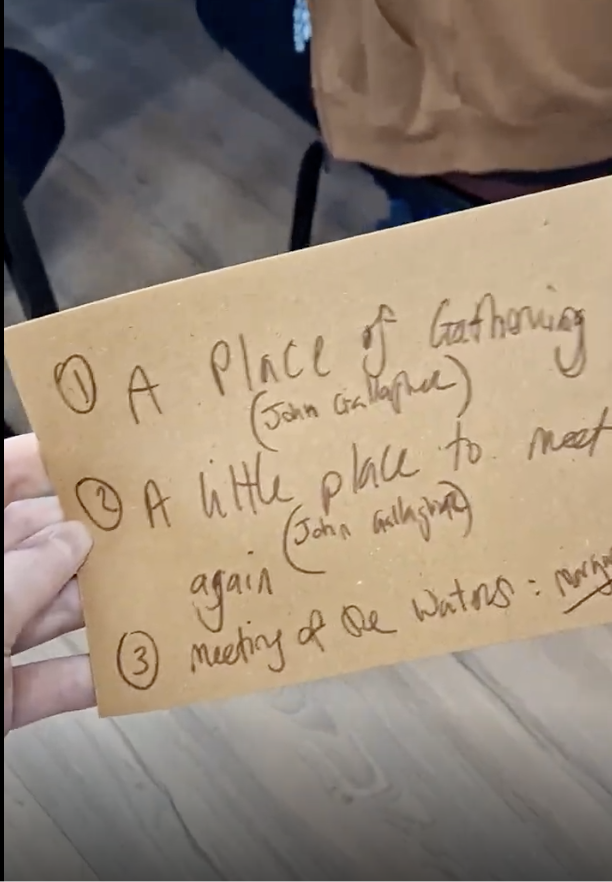 ① A Place of Gathering
(John Gallagher)
② A little place to meet
again (John Gallagher)
③ Meeting of the Waters :